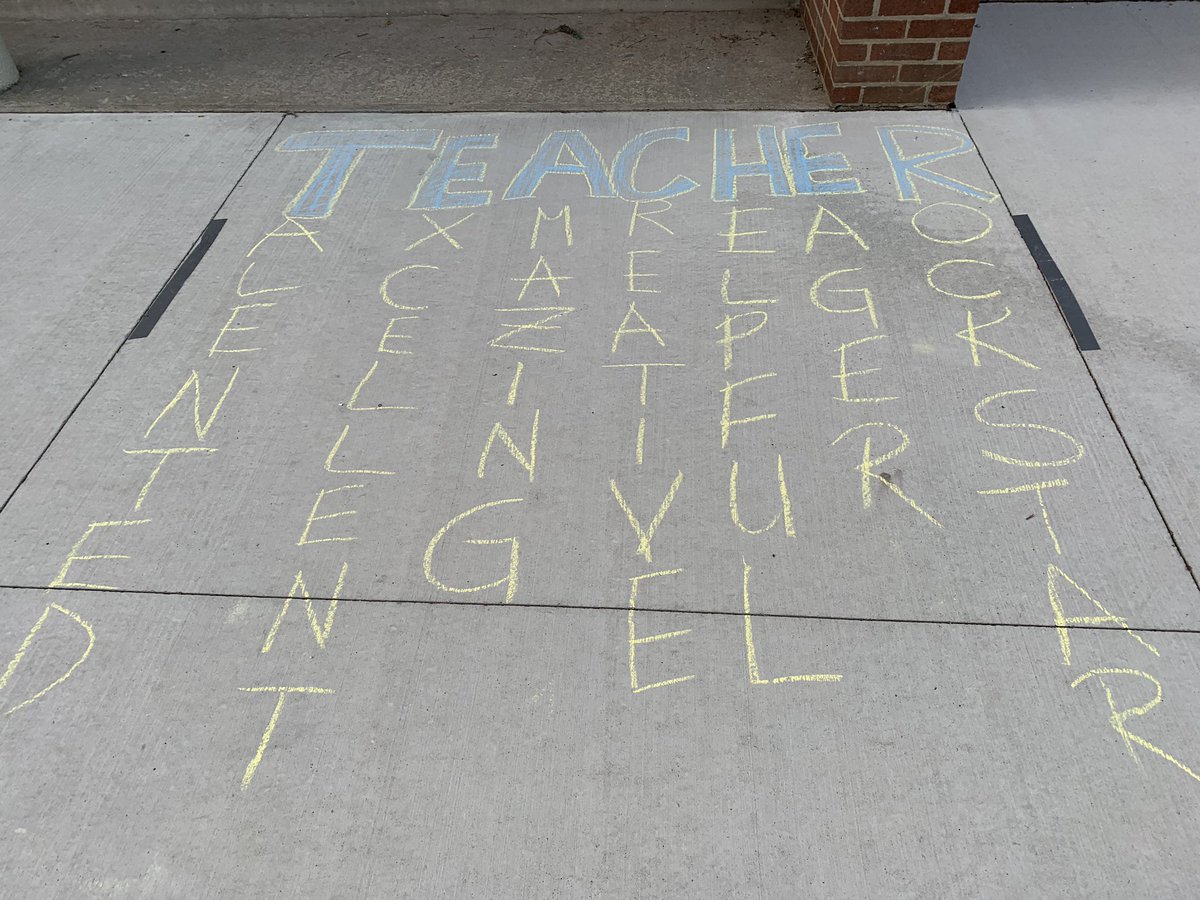 TEACHER
ALENTED
XCELLENT
MAZING
REATIVE
ELPFUL
AGER
OCKSTAR